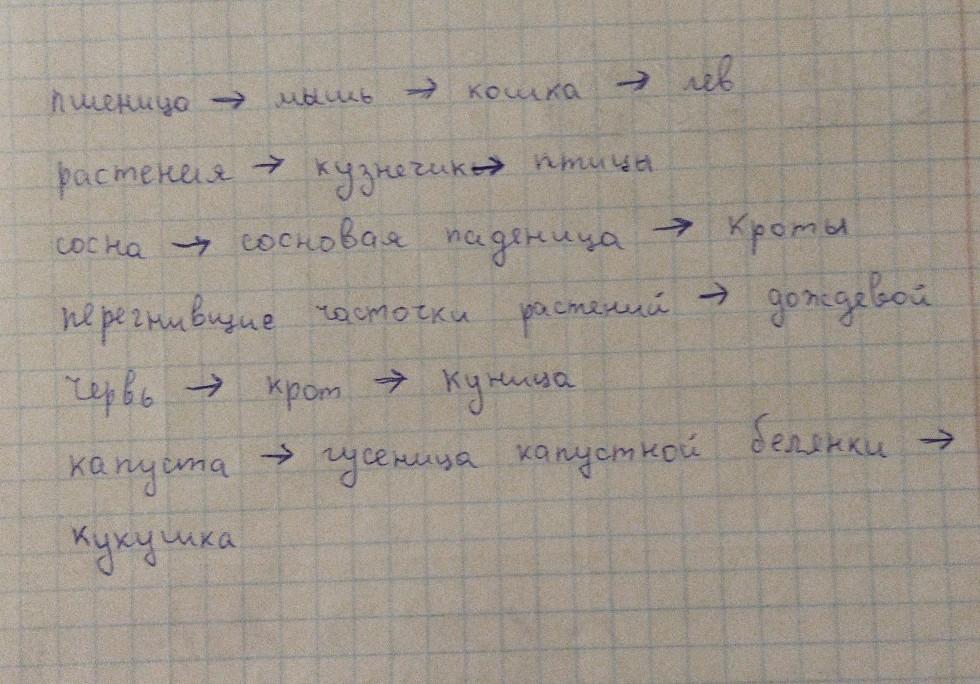 пшеница → мышь → кошка → лев
растения → кузнечик → птицы
сосна → сосновая пяденица → кроты
перегнившие часточки растений → дождевой
червь → крот → куница
капуста → гусеница капустной белянки →
кукушка